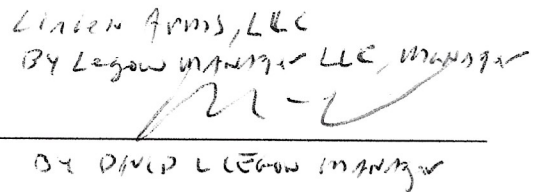 Linien Arms, LLC
BY Legow MANAger LLC, MANAger
BY DAVID L LEGOW MANAger